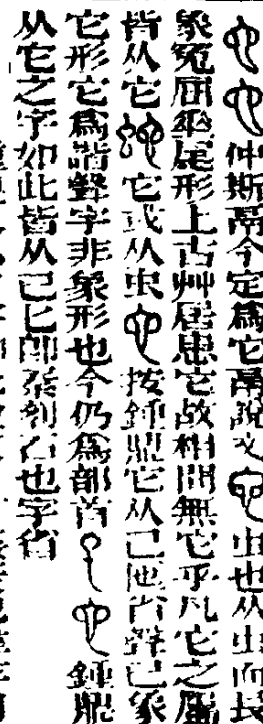 仲斯鬲今定爲它鬲說文虫也从虫而長
象冤屈𠂹尾形上古艸居患它故相問無它乎凡它之屬
皆从它它或从虫按鍾鼎它从己匜省聲己象
它形它爲諧聲字非象形也今仍爲部首鍾鼎
从它之字如此皆从己匕郎㳟刻石也字省